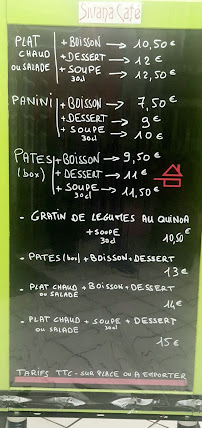 Sivana Café
PLAT CHAUD OU SALADE
+ BOISSON → 10,50 €
+ DESSERT → 12 €
+ SOUPE 30cl → 12,50 €
PANINI
+ BOISSON → 7,50 €
+ DESSERT → 9 €
+ SOUPE 30cl → 10 €
PATES (box)
+ BOISSON → 9,50 €
+ DESSERT → 11 €
+ SOUPE 30cl → 11,50 €
- GRATIN DE LEGUMES AU QUINOA
+ SOUPE 30cl 10,50 €
- PATES (box) + BOISSON + DESSERT
13 €
- PLAT CHAUD + BOISSON + DESSERT
OU SALADE 14 €
- PLAT CHAUD + SOUPE 30cl + DESSERT
OU SALADE 15 €
TARIFS TTC - SUR PLACE OU A EMPORTER